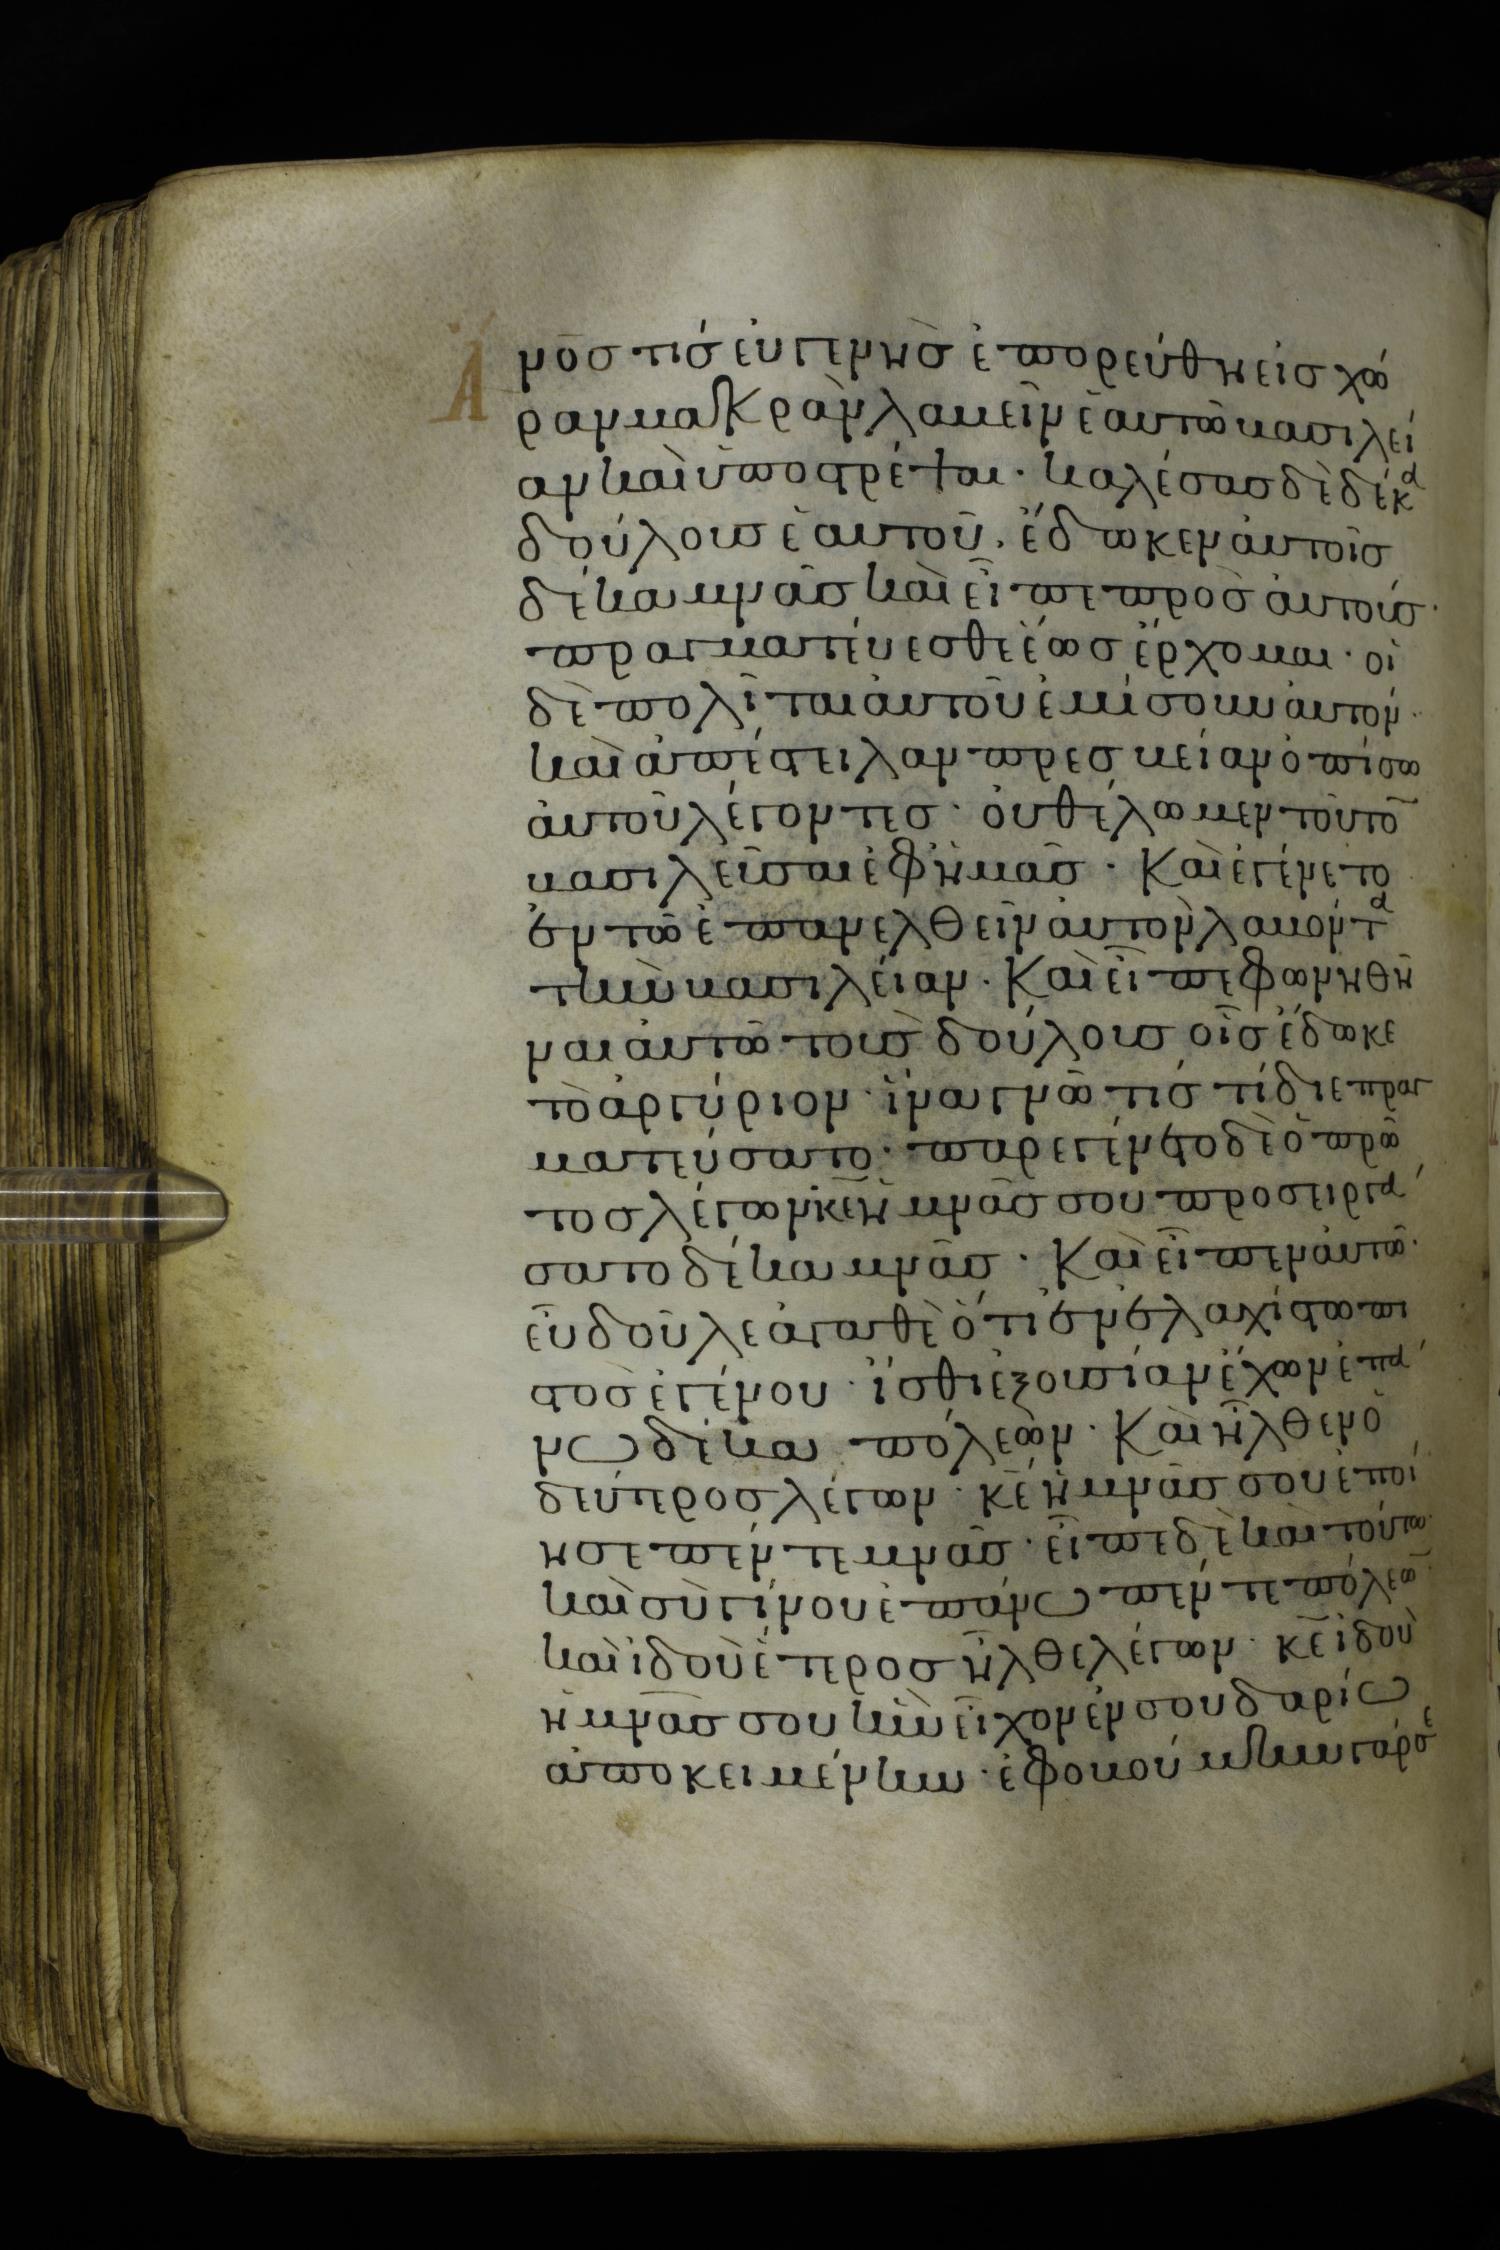 Ἄνο̅σ τίσ ἐυγενὴσ ἐπορεύθη εἰσ χώ
ραν μακρὰν λαβεῖν ἑαυτῶ βασιλεί
αν καὶ ὑποστρέψαι · καλέσασ δὲ δέκα
δούλουσ ἑαυτοῦ · ἔδωκεν ἀυτοῖσ
δέκα μνᾶσ καὶ εἶπε πρὸσ ἀυτούσ ·
πραγματέυεσθε ἕωσ ἔρχομαι · οἱ
δὲ πολῖται ἀυτοῦ ἐμίσουν ἀυτόν ·
καὶ ἀπέστειλαν πρεσβείαν ὀπίσω
ἀυτοῦ λέγοντεσ · ὀυ θέλωμεν τοῦτο̅
βασιλεῦσαι ἐφ ἡμᾶσ · Καὶ ἐγένετο
ἐν τῶ ἐπανελθεῖν ἀυτὸν λαβόντα
τὴν βασιλείαν · Καὶ εἶπε φωνηθῆ
ναι ἀυτῶ τοὺσ δούλουσ οἷσ ἔδωκε
τὸ ἀργύριον · ἵνα γνῶ τίσ τί διεπραγ
ματεύσατο · παρεγένετο δὲ ὁ πρῶ
τοσ λέγων κ̅ε ἡ μνᾶσ σου προσειργά
σατο δέκα μνᾶσ · Καὶ εἶπεν ἀυτῶ ·
εὖ δοῦλε ἀγαθὲ ὅτι ἐν ἐλαχίστω πι
στὸσ ἐγένου · ἴσθι ἐξουσίαν ἔχων ἐπά
νω δέκα πόλεων · Καὶ ἦλθεν ὁ
δεύτεροσ λέγων · κ̅ε ἡ μνᾶσ σου ἐποί
ησε πέντε μνᾶσ · εἶπε δὲ καὶ τούτω ·
καὶ σὺ γίνου ἐπάνω πέντε πόλεω̅ ·
καὶ ἰδοὺ ἕτεροσ ἦλθε λέγων · κ̅ε ἰδοὺ
ἡ μνᾶσ σου ἣν εἶχον ἐν σουδαρίω
ἀποκειμένην · ἐφοβούμην γάρ σε